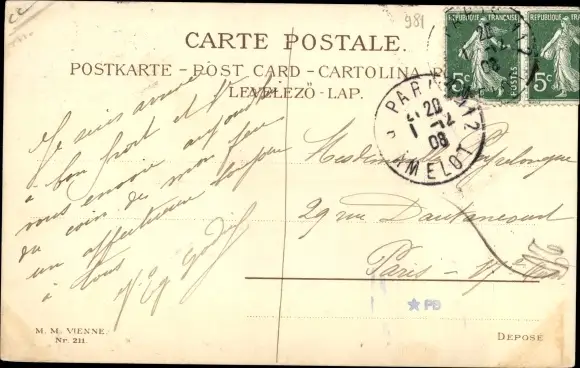 981
CARTE POSTALE.
POSTKARTE - POST CARD - CARTOLINA P
LEVELEZŐ-LAP.
REPUBLIQUE FRANÇAISE
5c
POSTES
REPUBLIQUE
5c
PARIS 12
20
1 - 12
08
AMELOT
Je suis arrivé
à bon port et
vous envoie aujourd'hui
du coin de mon feu
un affectueux bonjour
à tous
Mesdames
29 rue Dautancourt
Paris - 17e
PB
M. M. VIENNE.
Nr. 211.
DEPOSÉ